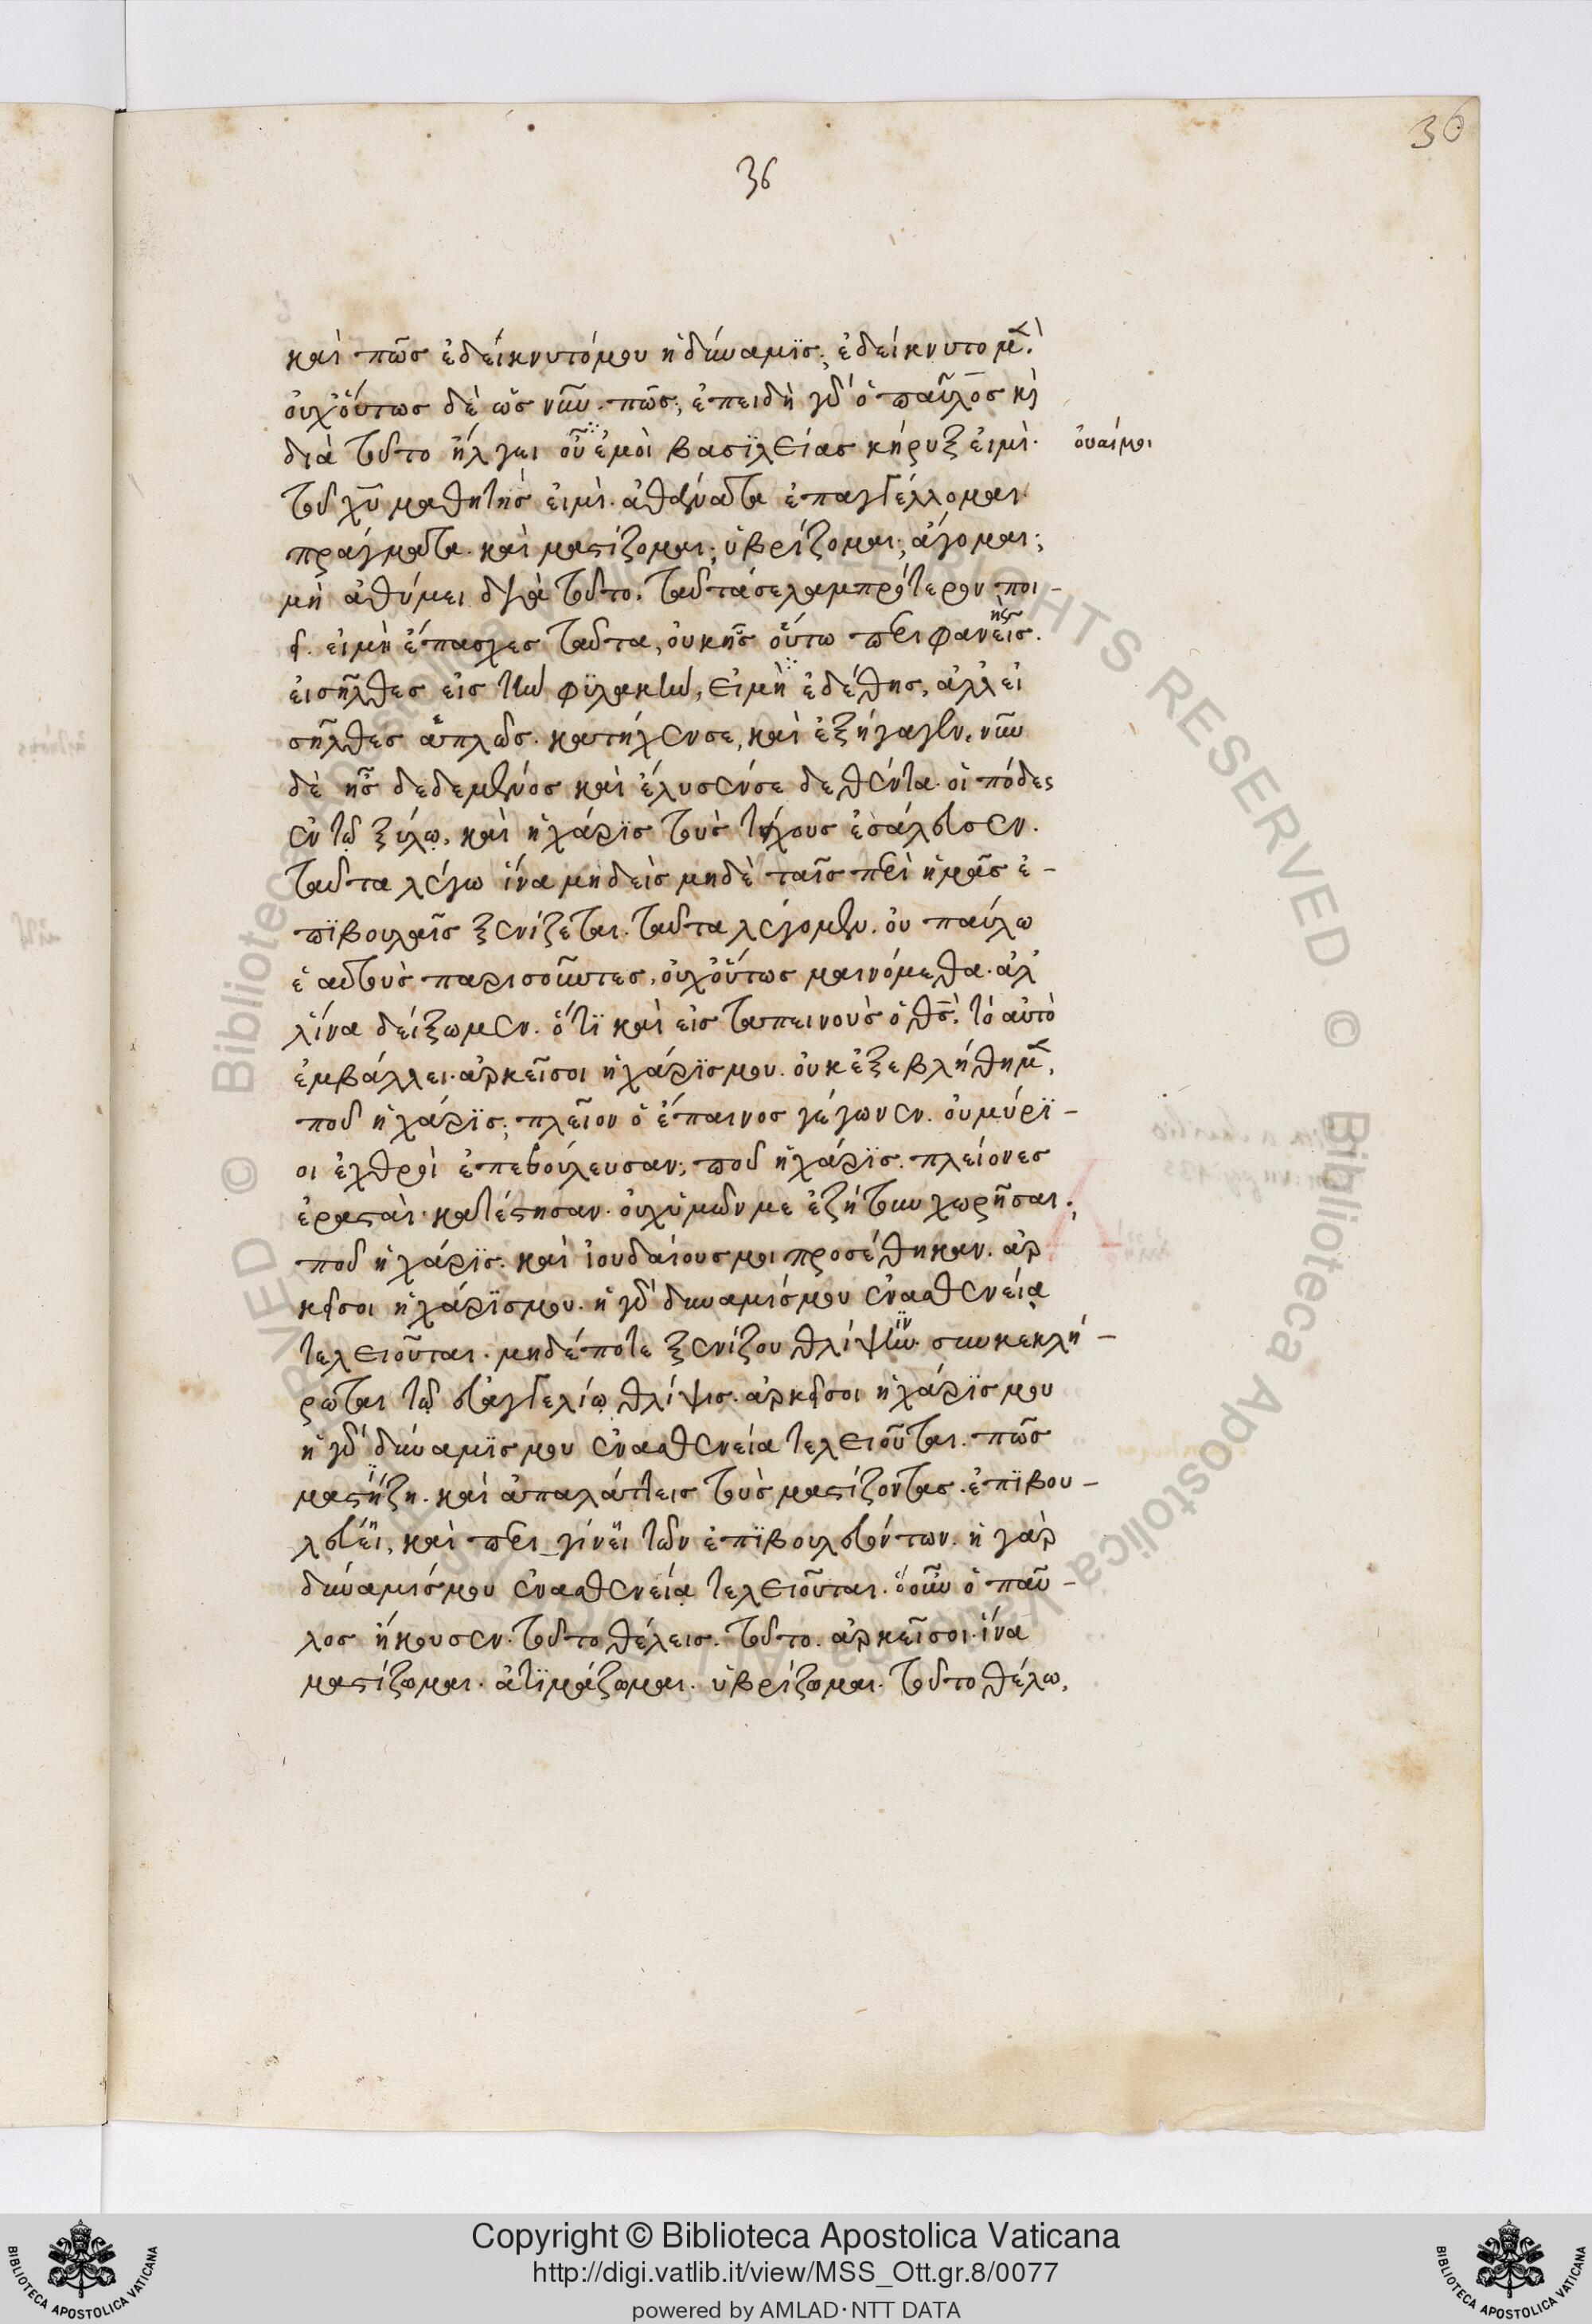 36
36
καὶ πῶσ ἐδείκνυτόμου ἡδύναμϊσ; ἐδείκνυτο μὲν.
οὐχοὕτωσ δὲ ὡσ νῦν. πῶσ; ἐπειδὴ γὰρ ὁ παῦλοσ καὶ
διὰ τοῦτο ἤλγει οὗ ἐμοὶ βασϊλείασ κήρυξ εἰμὶ.
ὀυαίμοι
τοῦ χῦ μαθητὴσ εἰμὶ. ἀθάνατα ἐπαγγέλλομαι
πράγματα. καὶ μαστίζομαι; ὑβρίζομαι; ἄγομαι;
μὴ ἀθύμει διὰ τοῦτο. ταῦτάσελαμπρότερον ποι-
εῖ. εἰμὴ ἔπασχεσ ταῦτα, οὐκῆσ οὕτω περιφανεὶσ.
ὴσ
εἰσῆλθεσ εἰσ τὴν φϋλακὴν; εἰμὴ ἐδέθησ, ἀλλεἰ
σῆλθεσ ἁπλῶσ. κατήχενσε, καὶ ἐξήγαγεν. νῦν
δὲ ἦσ δεδεμένοσ καὶ ἔλυσένσε δεθέντα. οἱ πόδεσ
ἐν τῶ ξύλω, καὶ ἡχάρϊσ τοὺσ τοίχουσ ἐσάλευσεν.
ταῦτα λέγω ἵνα μηδεὶσ μηδὲ ταῖσ περὶ ἡμᾶσ ἐ-
πϊβουλαῖσ ξενίζεται. ταῦτα λέγομεν. οὐ παύλω
ἑαυτοὺσ παρισοῦντεσ. οὐχοὕτωσ μαινόμεθα. ἀλ
λἵνα δείξωμεν. ὅτϊ καὶ εἰσ ταπεινοὺσ ὁ θσ. τὸ αὐτὸ
ἐμβάλλει. ἀρκεῖσοι ἡχάρϊσμου. οὐκἐξεβλήθημεν,
ποῦ ἡχάρϊσ; πλεῖον ὁ ἔπαινοσ γέγωνεν. οὐμύρϊ-
οι ἐχθροὶ ἐπεβούλευσαν; ποῦ ἡχάρϊσ. πλείονεσ
ἐρασταὶ. κατέστησαν. οὐχὑμῶνμε ἐζήτουν χωρῆσαι;
ποῦ ἡχάρϊσ. καὶ ἰουδαίουσμοι προσέθηκαν. ἀρ
κεῖσοι ἡχάρϊσμου. ἡ γὰρ δυναμισμου ἐνασθενεία
τελειοῦται. μηδέποτε ξενίζου θλίψϊν. συνκεκλή-
ρωται τῶ εὐαγγελίω θλίψισ. ἀρκεῖσοι ἡχάρϊσ μου
ἡ γὰρ δύναμϊσμου ἐνασθενεία τελειοῦται. πῶσ
μαστήζη. καὶ ἀπαλάττεισ τοὺσ μαστίζοντασ. ἐπϊβου-
λεύη, καὶ περιγίνη τῶν ἐπϊβουλευόντων. ἡ γὰρ
δύναμισμου ἐνασθενεία τελειοῦται. ὅοὖν ὁ παῦ-
λοσ ἤκουσεν. τοῦτο θέλεισ. τοῦτο. ἀρκεῖσοι. ἵνα
μαστίζομαι. ἀτϊμάζομαι. ὑβρίζομαι. τοῦτο θέλω,
Copyright © Biblioteca Apostolica Vaticana
http://digi.vatlib.it/view/MSS_Ott.gr.8/0077
powered by AMLAD·NTT DATA